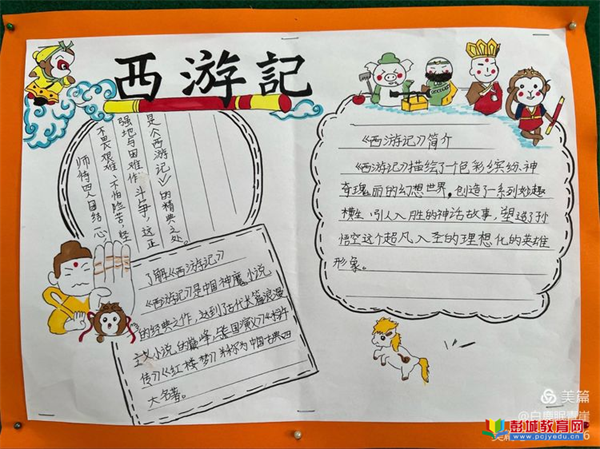 西游記
师徒四人团结一心
不畏艰难、不怕险苦,坚
强地与困难作斗争,这正
是《西游记》的精典之处。
了解《西游记》
《西游记》是中国神魔小说
的经典之作,达到了古代长篇浪漫
主义小说的巅峰,国演义》《水浒
传》《红楼梦》并称为中国古典四
大名著。
《西游记》简介
《西游记》描绘了一个色彩缤纷、神
奇瑰丽的幻想世界,创造了一系列妙趣
横生、引人入胜的神话故事,塑造了孙
悟空这个超凡入圣的理想化的英雄
形象。
美篇
@白鹿眠青崖
彭城教育网
www.pcjyedu.cn